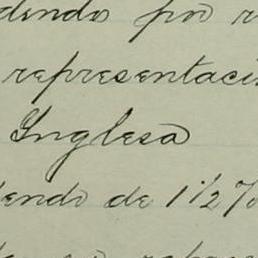 dendo por r
representaci
Ynglesa
dendo de 1 1/2 %